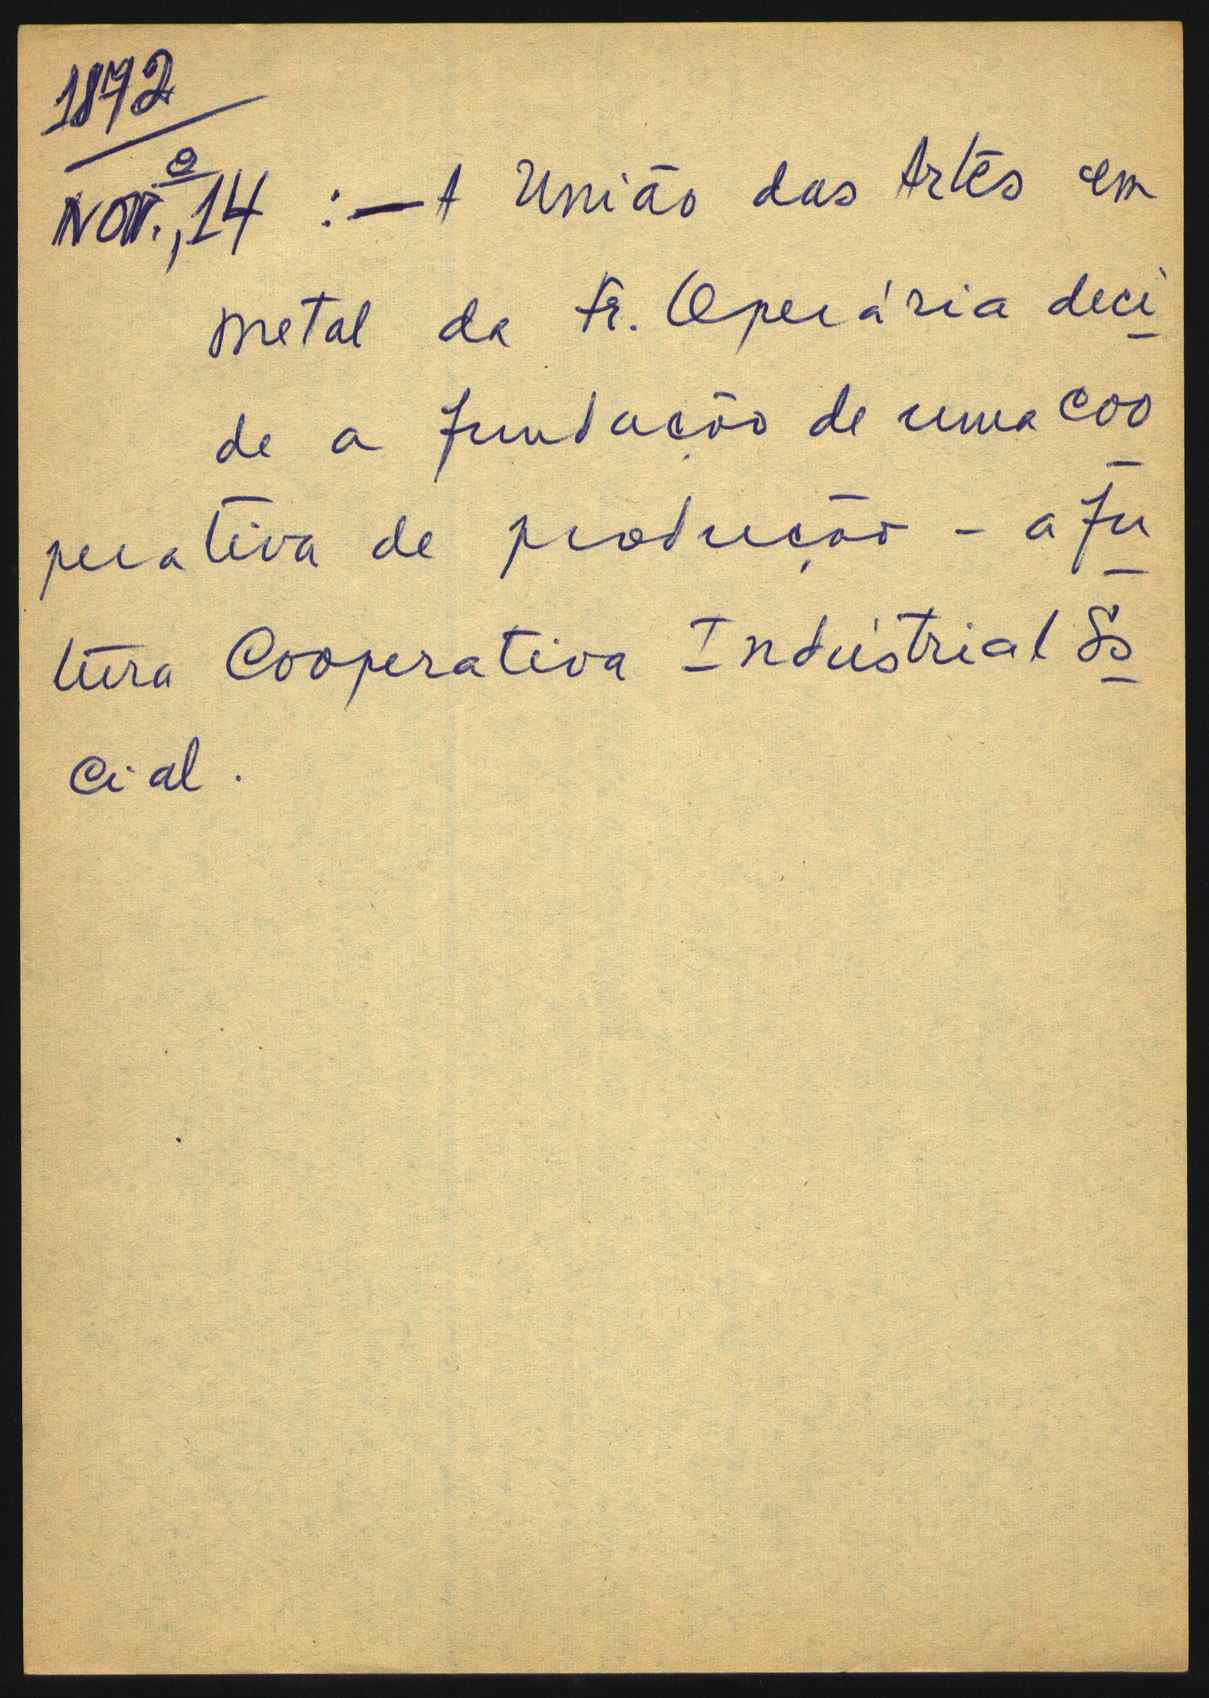 1872
Nov.º, 14 :— A União das Artes em
metal da Fr. Operária deci
de a fundação de uma coo
perativa de produção - a fu
tura Cooperativa Industrial So
cial.